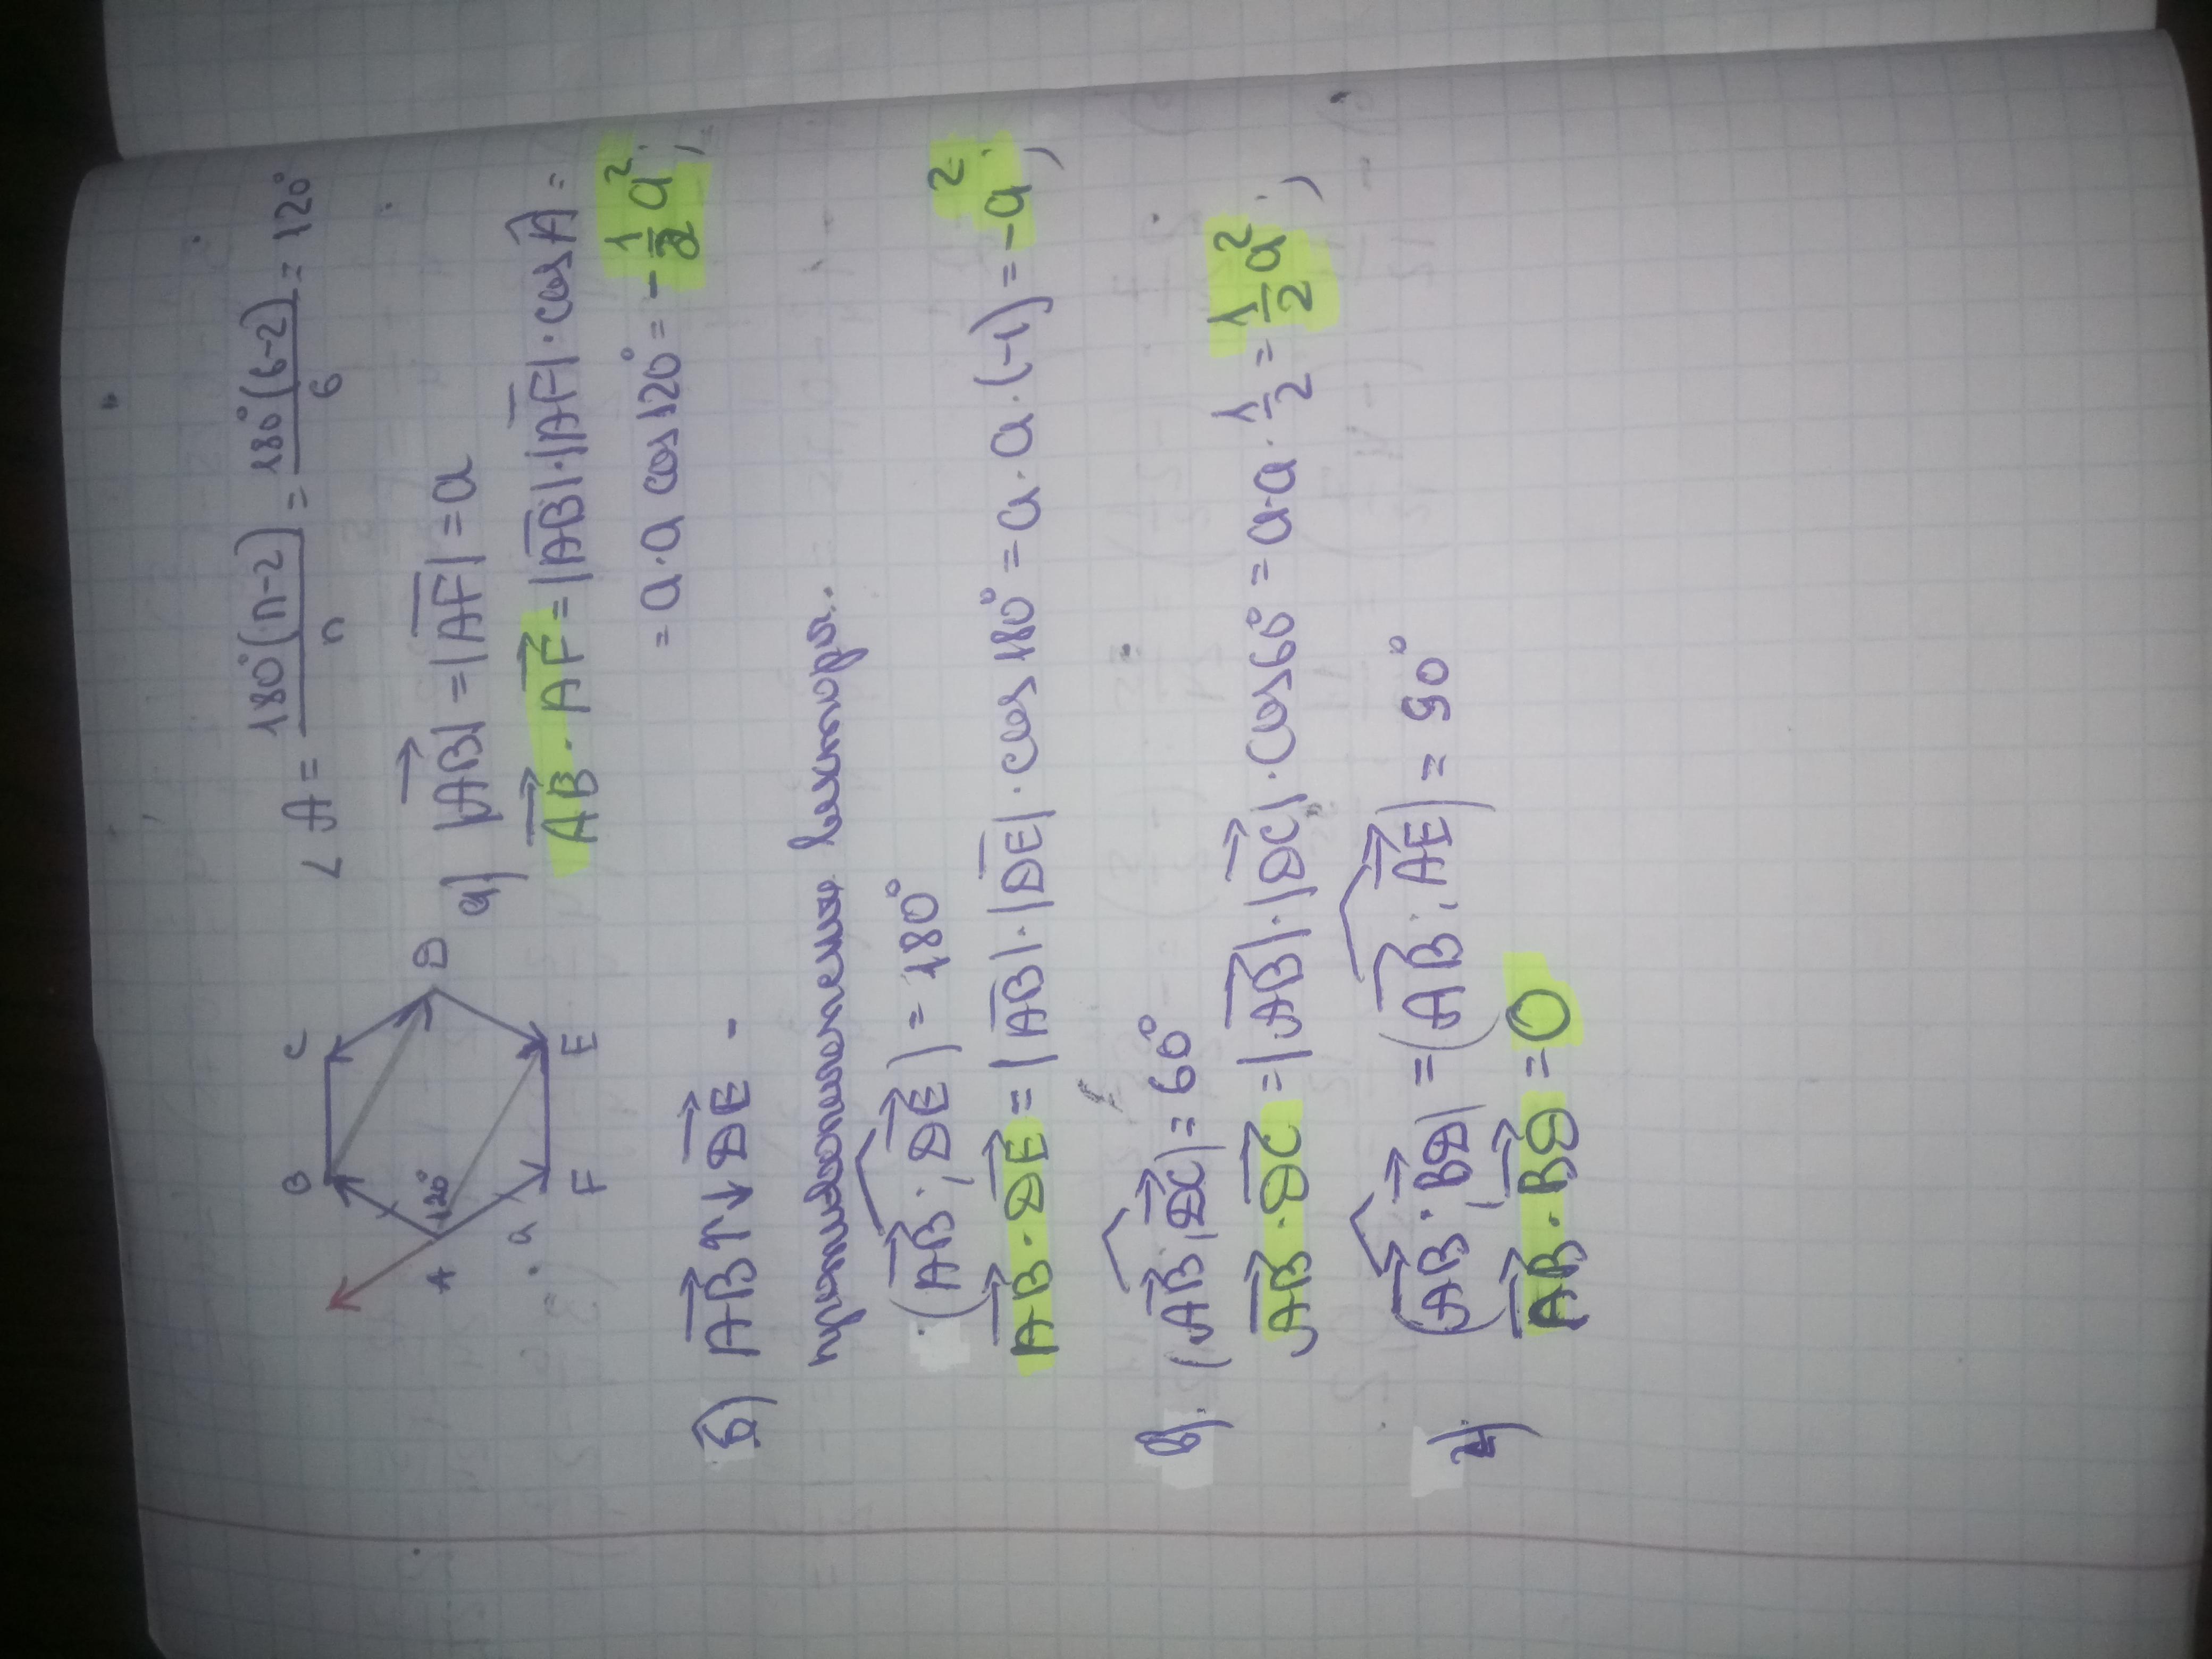 B C
A 120° D
a F E
∠A = 180°(n-2)/n = 180°(6-2)/6 = 120°
a) |AB| = |AF| = a
AB · AF = |AB|·|AF|·cos A =
= a·a cos 120° = -1/2 a²;
б) AB ↑↓ DE -
противоположно направлены
(AB; DE) = 180°
AB · DE = |AB|·|DE|·cos 180° = a·a·(-1) = -a²;
в) (AB; DC) = 60°
AB · DC = |AB|·|DC|·cos 60° = a·a·1/2 = 1/2 a²;
г) (AB · BD) = (AB; AE) = 90°
AB · BD = 0